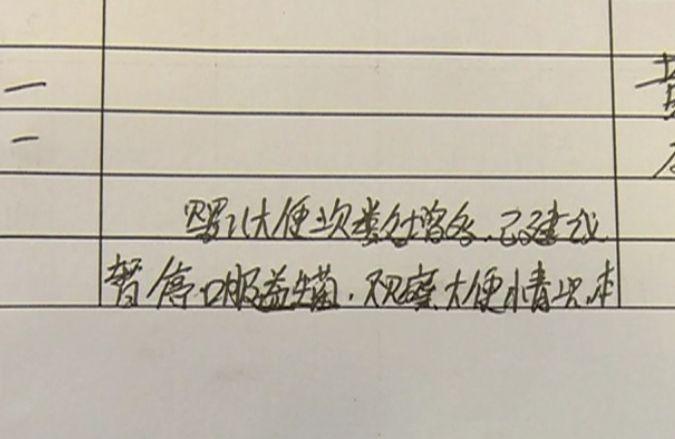 一
一
默认大便次数较增多，已建议
暂停口服益生菌，观察大便情况。